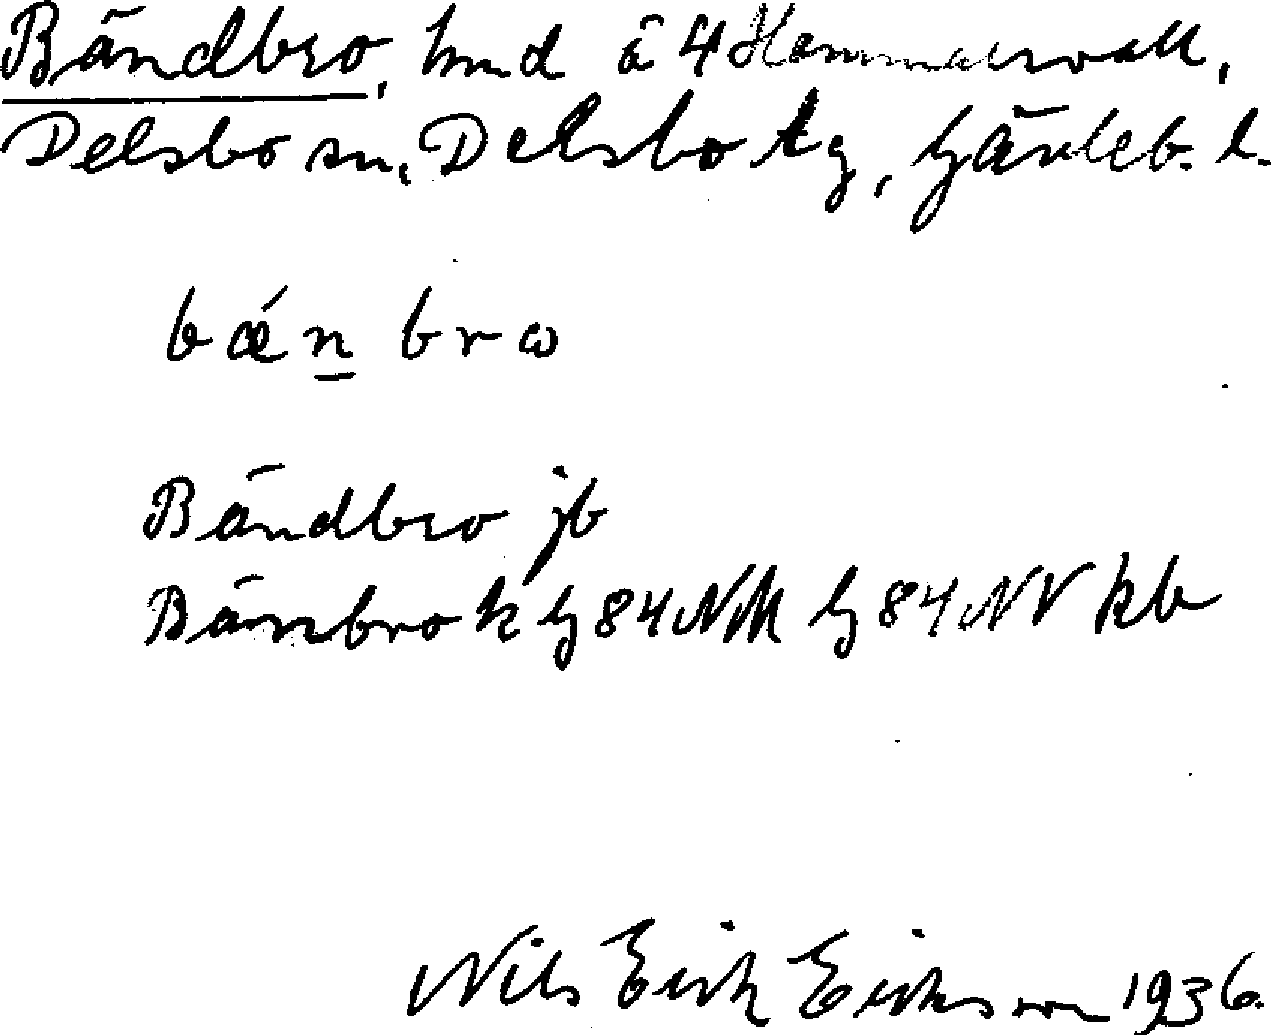 Bändbro, hmd å 4 Hammarvall,
Delsbo sn, Delsbo tg, Gävleb. l.
bǽn̲ brω
Bändbro jb
Bänbro k Gg 84 NM Gg 84 NV kb
Nils Erik Eriksson 1936.